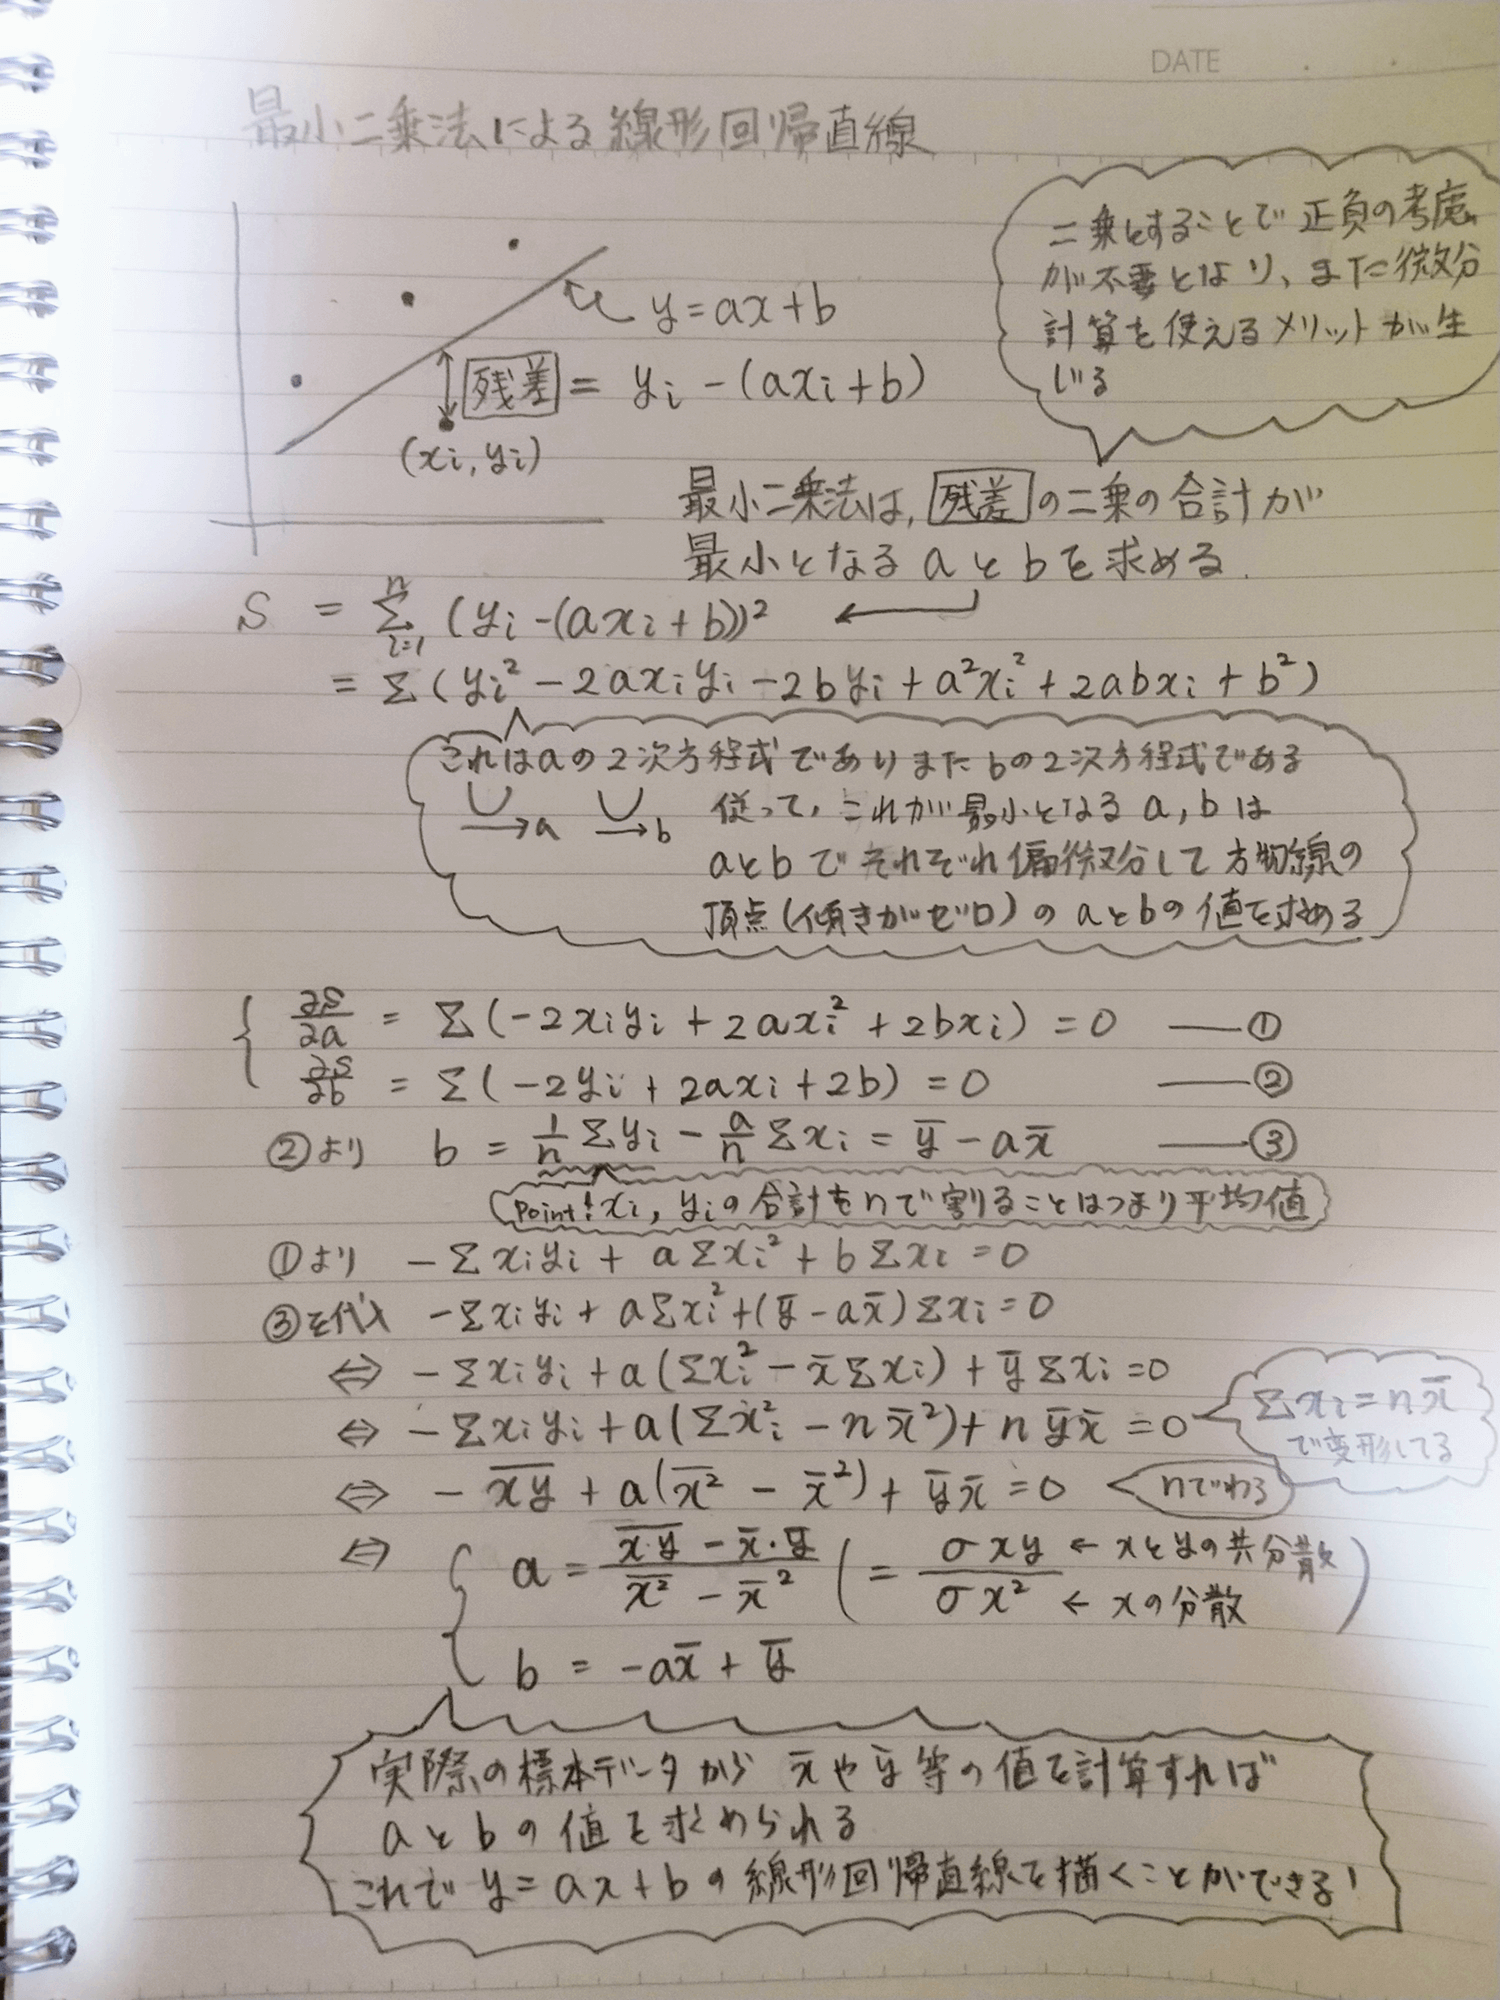 DATE
最小二乗法による線形回帰直線
二乗とすることで正負の考慮
が不要となり、また微分
計算を使えるメリットが生
じる
y = ax + b
残差 = yi - (axi + b)
(xi, yi)
最小二乗法は, 残差の二乗の合計が
最小となる a と b を求める.
S = Σ_{i=1}^{n} (yi - (axi + b))²
= Σ ( yi² - 2axiyi - 2byi + a²xi² + 2abxi + b² )
これはaの2次方程式でありまたbの2次方程式である
→a →b 従って, これが最小となる a, b は
aとbでそれぞれ偏微分して方物線の
頂点(傾きがゼロ)の aとbの値を求める
∂S/∂a = Σ (-2xiyi + 2axi² + 2bxi) = 0 ——①
∂S/∂b = Σ (-2yi + 2axi + 2b) = 0 ——②
②より b = 1/n Σyi - a/n Σxi = ȳ - ax̄ ——③
Point! xi, yiの合計をnで割ることはつまり平均値
①より -Σxiyi + aΣxi² + bΣxi = 0
③を代入 -Σxiyi + aΣxi² + (ȳ - ax̄)Σxi = 0
⇔ -Σxiyi + a(Σxi² - x̄Σxi) + ȳΣxi = 0
⇔ -Σxiyi + a(Σxi² - nx̄²) + nȳx̄ = 0
Σxi = nx̄
で変形してる
⇔ -x̅y̅ + a(x̅²̅ - x̄²) + ȳx̄ = 0 nでわる
⇔ a = (x̅·̅y̅ - x̄·ȳ)/(x̅²̅ - x̄²) ( = σxy/σx² ← xとyの共分散 ← xの分散 )
b = -ax̄ + ȳ
実際の標本データから x̄やȳ等の値を計算すれば
aとbの値を求められる
これで y = ax + b の線形回帰直線を描くことができる!